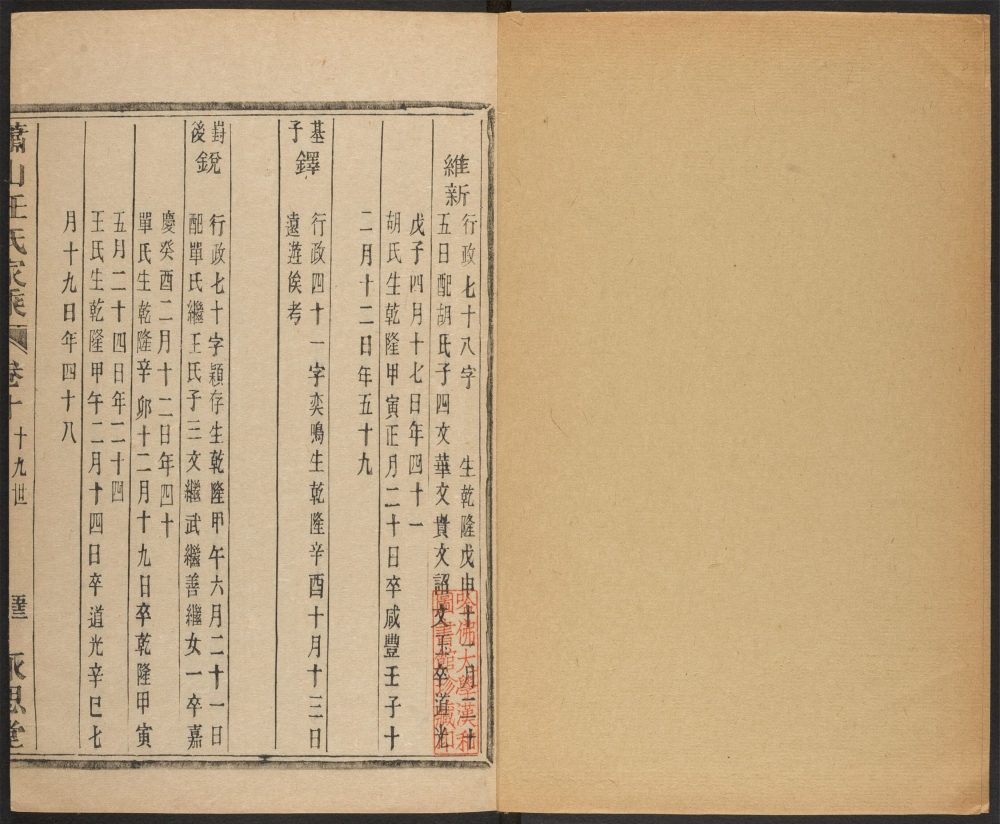 維新
行政七十八字 生乾隆戊申十一月二十
五日配胡氏子四文華文貴文詔文玉卒道光
戊子四月十七日年四十一
胡氏生乾隆甲寅正月二十日卒咸豐壬子十
二月十二日年五十九
基子
鐸
行政四十一字奕鳴生乾隆辛酉十月十三日
遠遊俟考
封後
銳
行政七十字穎存生乾隆甲午六月二十一日
配單氏繼王氏子三文繼武繼善繼女一卒嘉
慶癸酉二月十二日年四十
單氏生乾隆辛卯十二月十九日卒乾隆甲寅
五月二十四日年二十四
王氏生乾隆甲午二月十四日卒道光辛巳七
月十九日年四十八
蕭山王氏家乘 卷十 十九世 永思堂
哈佛大學漢和
圖書館珍藏印